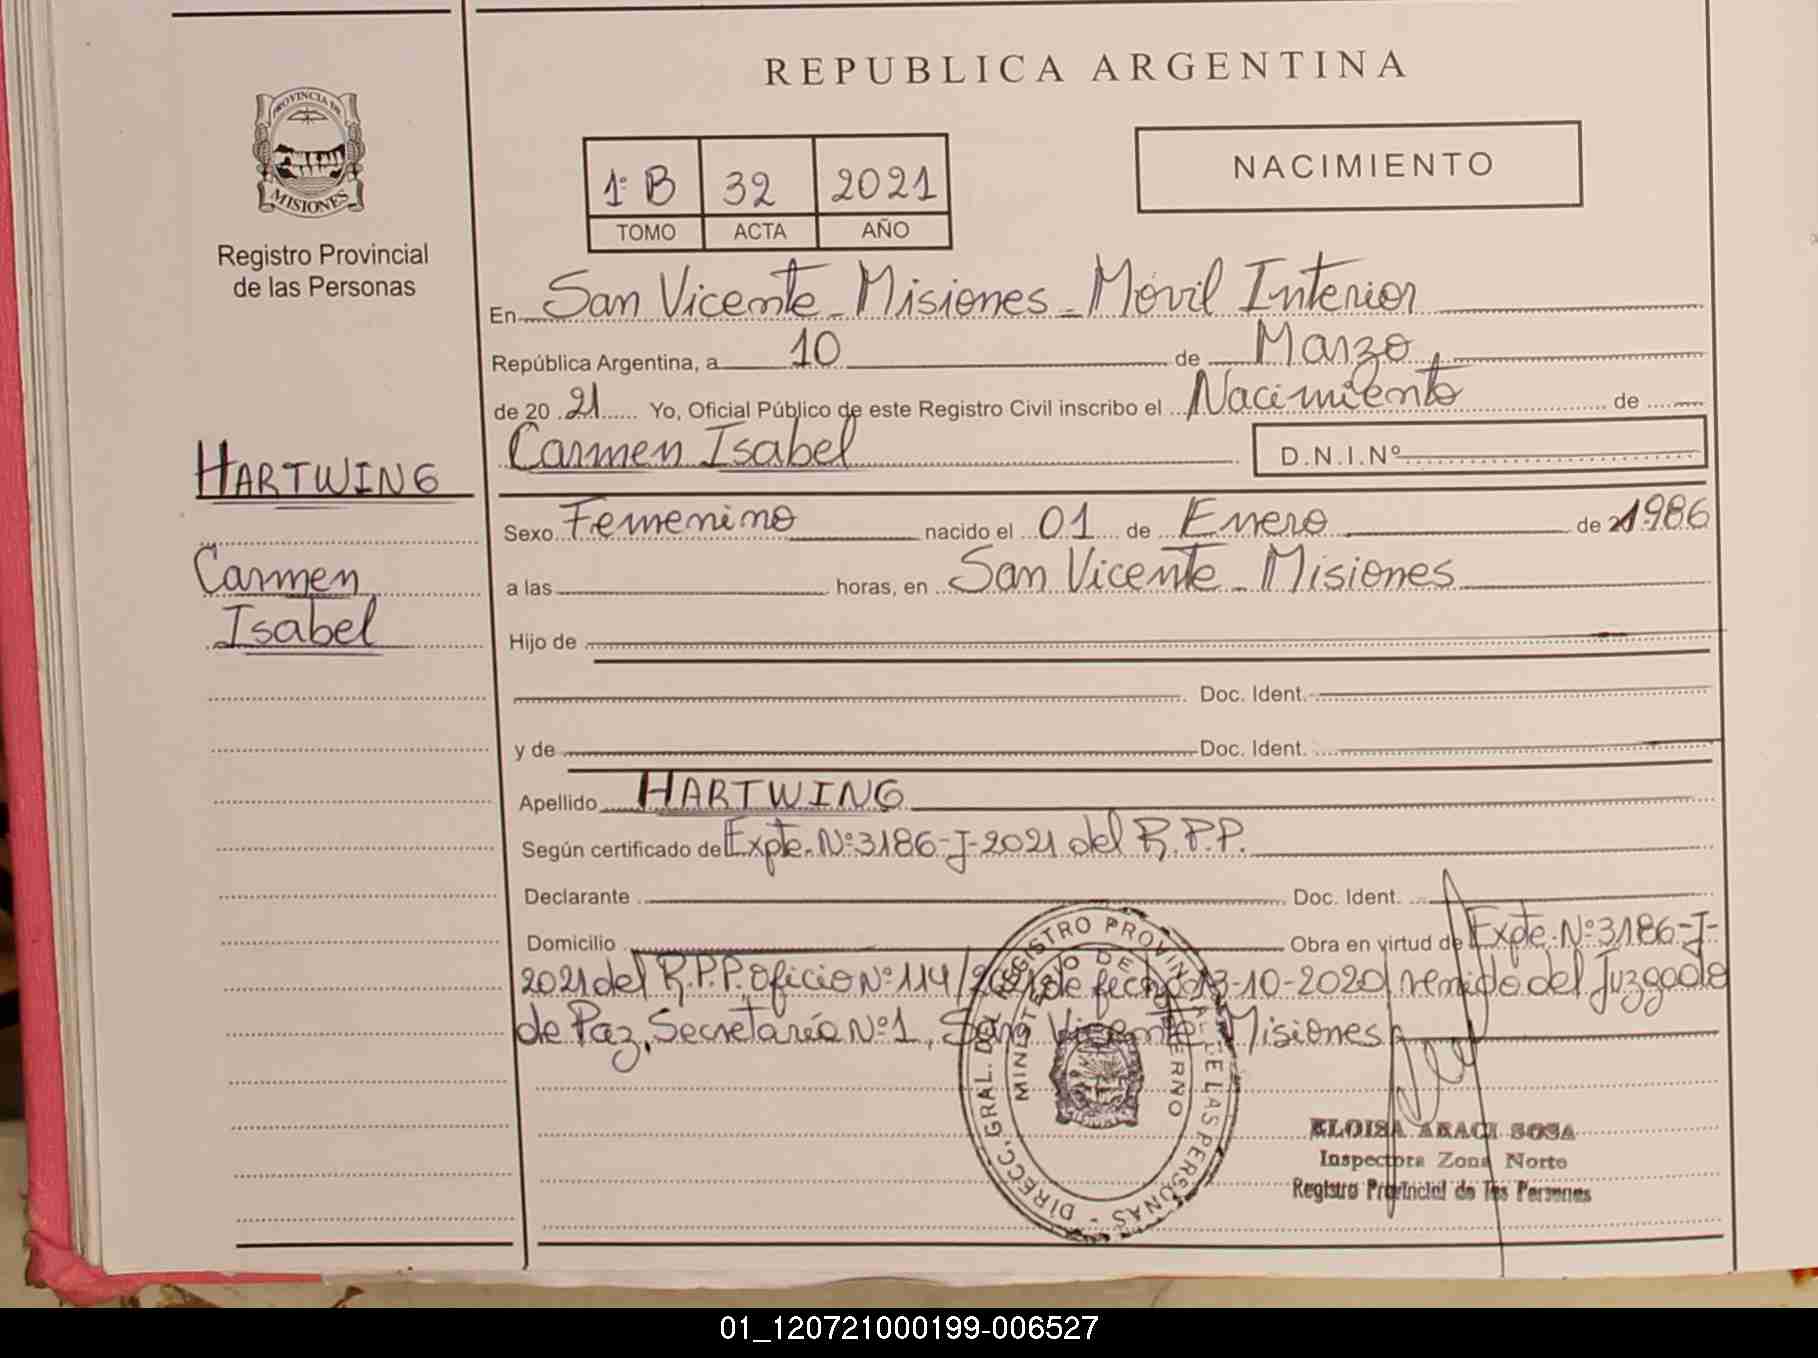 REPUBLICA ARGENTINA
PROVINCIA DE
MISIONES
Registro Provincial
de las Personas
1º B 32 2021
TOMO ACTA AÑO
NACIMIENTO
En San Vicente - Misiones - Móvil Interior
República Argentina, a 10 de Marzo
de 20 21 Yo, Oficial Público de este Registro Civil inscribo el Nacimiento de
Carmen Isabel D.N.I.Nº
HARTWING
Carmen
Isabel
Sexo Femenino nacido el 01 de Enero de 1986
a las horas, en San Vicente - Misiones
Hijo de
Doc. Ident.
y de Doc. Ident.
Apellido HARTWING
Según certificado de Expte. Nº 3186-J-2021 del R.P.P.
Declarante Doc. Ident.
Domicilio Obra en virtud de Expte. Nº 3186-J-
2021 del R.P.P. Oficio Nº 114/2021 de fecha 13-10-2020 remido del Juzgado
de Paz, Secretaría Nº 1, San Vicente, Misiones
DIRECC. GRAL. DEL REGISTRO PROVINCIAL DE LAS PERSONAS -
MINISTERIO DE GOBIERNO
ELOISA ARACI SOSA
Inspectora Zona Norte
Registro Provincial de las Personas
01_120721000199-006527